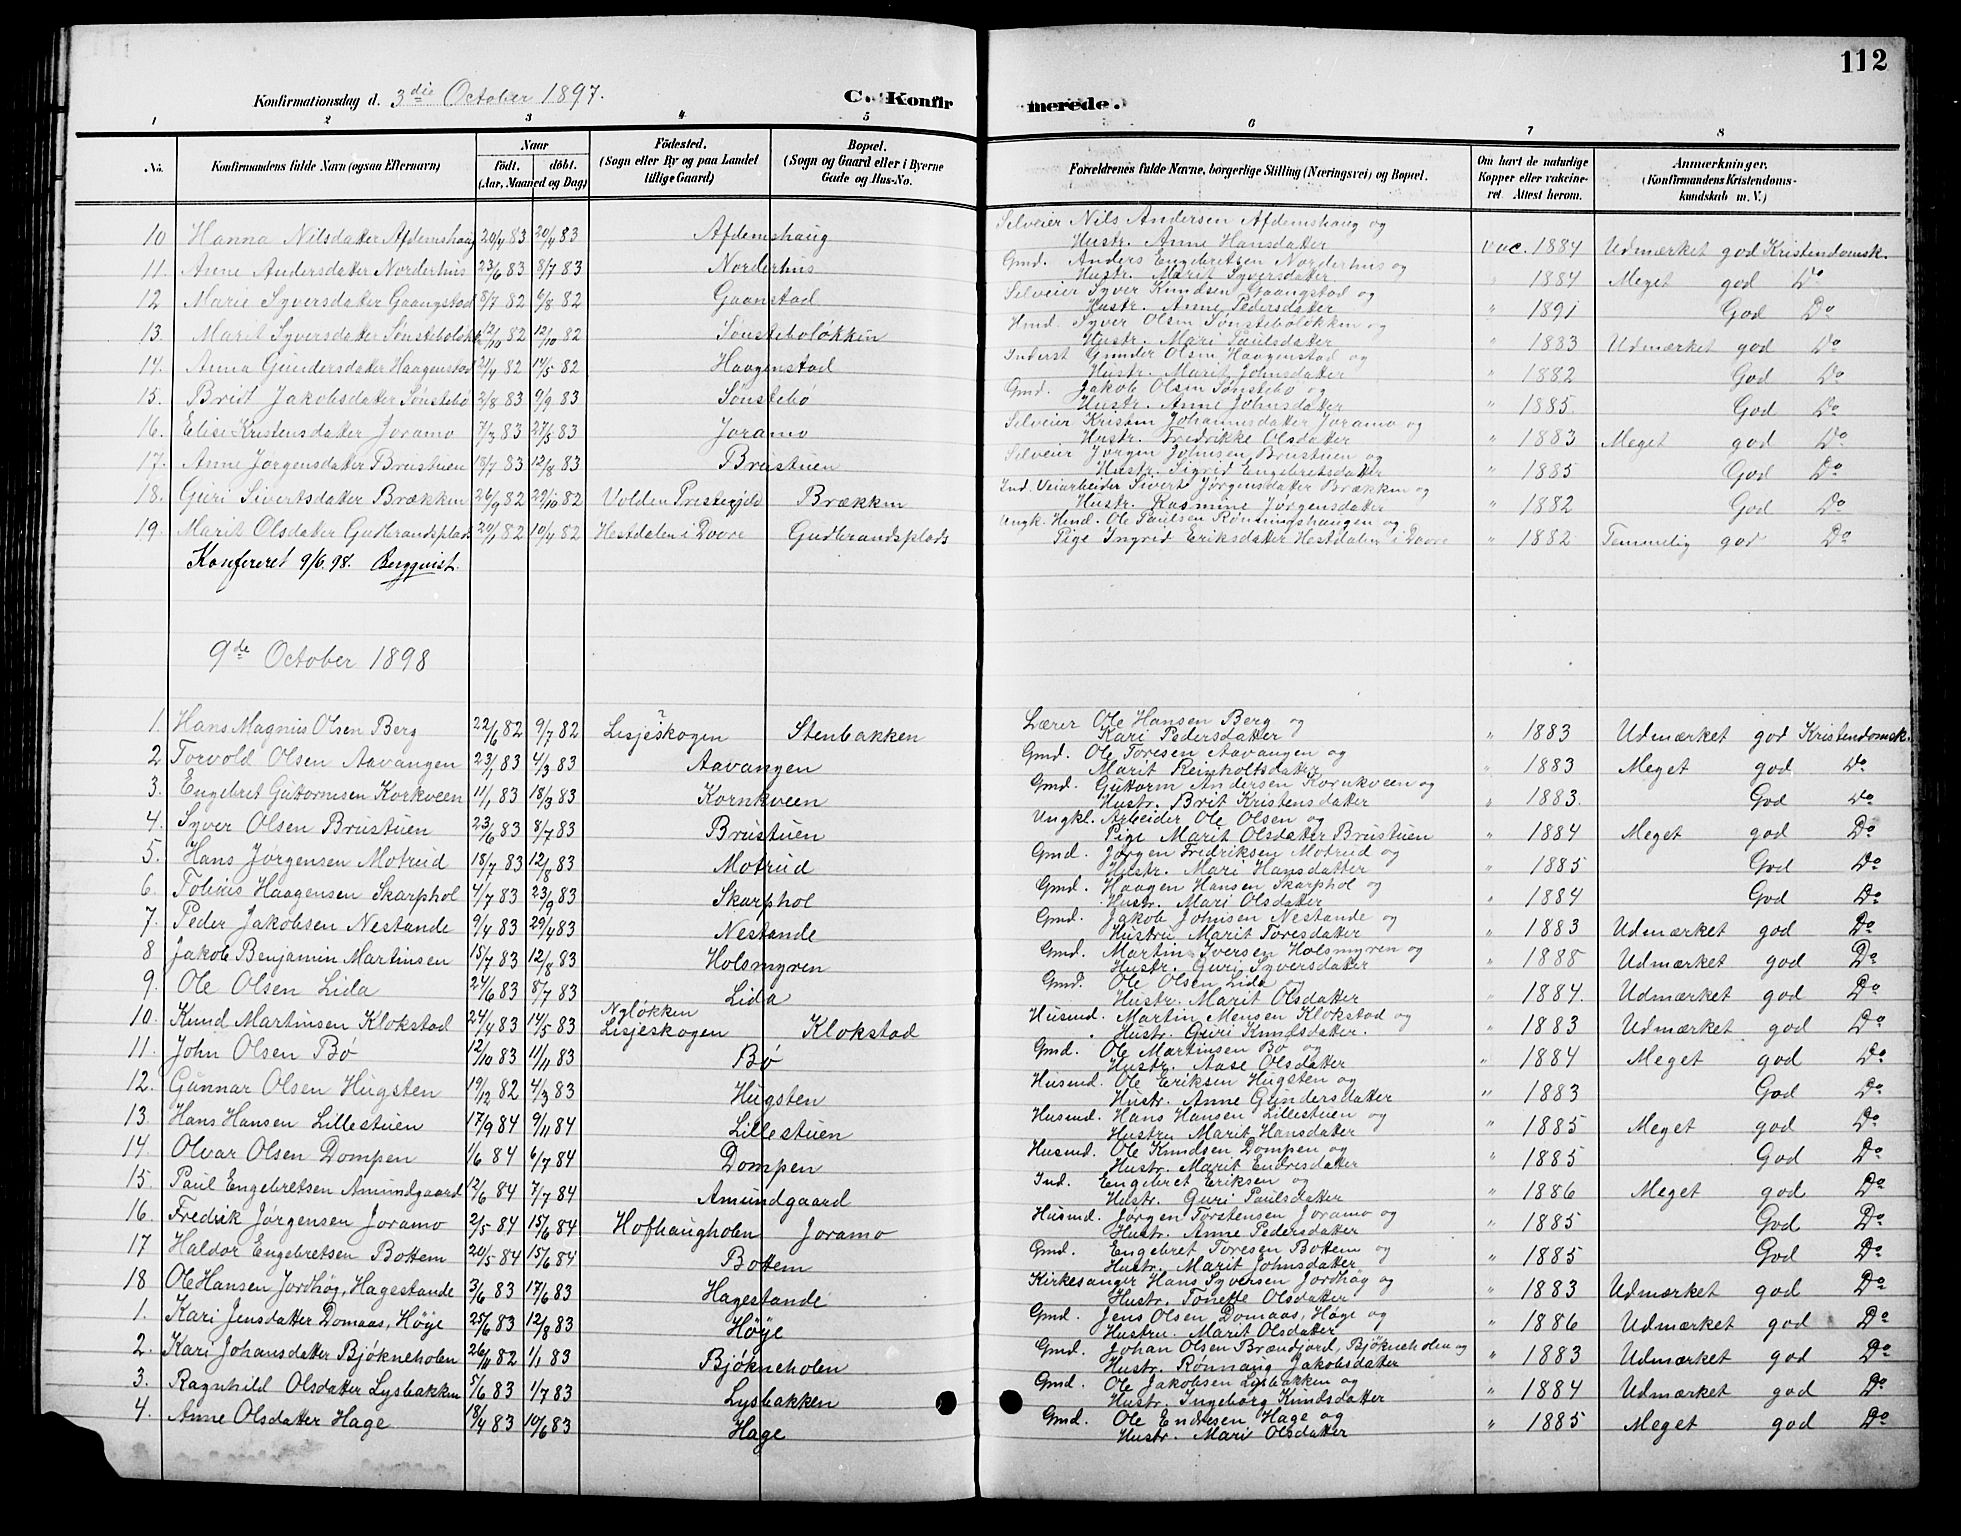 112
Konfirmationsdag d. 3die October 1897.
C. Konfirmerede.
1 2 3 4 5 6 7 8
No.
Konfirmandens fulde Navn (ogsaa Efternavn)
Naar
födt. döbt.
(Aar, Maaned og Dag)
Födested.
(Sogn eller By og paa Landet
tillige Gaard)
Bopæl.
(Sogn og Gaard eller i Byerne
Gade og Hus-No.
Forældrenes fulde Navne, borgerlige Stilling (Næringsvei) og Bopæl.
Om havt de naturlige
Kopper eller vakcine-
ret. Attest herom.
Anmærkninger.
(Konfirmandens Kristendoms-
kundskab m. V.)
10 Hanna Nilsdatter Afdemshaug 20/4 83 20/4 83 Afdemshaug Selveier Nils Andersen Afdemshaug og
Hustr. Anne Hansdatter vac. 1884 Udmærket god Kristendomsk.
11. Anne Andersdatter Norderhus 23/6 83 8/7 83 Norderhus Gmd. Anders Engebretsen Norderhus og
Hustr. Marit Syversdatter " 1884 Meget god Do
12 Marie Syversdatter Gaangstad 8/7 82 6/8 82 Gaanstad Selveier Syver Knudsen Gaangstad og
Hustr. Anne Pedersdatter " 1891 God Do
13. Marit Syversdatter 12/10 82 Sønsteboløkken Hmd. Syver Olsen Sønsteboløkken og
Hustr. Mari Paulsdatter " 1883 Udmærket god Do
14. Anna Gundersdatter Haagenstad 24/4 82 14/5 82 Haagenstad Inderst Gunder Olsen Haagenstad og
Hustr. Marit Johnsdatter " 1882 God Do
15. Brit Jakobsdatter Sønstebø 2/8 83 9/9 83 Sønstebø Gmd. Jakob Olsen Sønstebø og
Hustr. Anne Johnsdatter " 1885. God Do
16. Elise Kristensdatter Joramo 7/3 83 27/5 83 Joramo Selveier Kristen Johannesdatter Joramo og
Hustr. Fredrikke Olsdatter " 1883 Meget god Do
17. Anne Jørgensdatter Brustuen 13/7 83 12/8 83 Brustuen Selveier Jørgen Johnsen Brustuen og
Hustr. Sigrid Engebretsdatter " 1885 God Do
18. Guri Sivertsdatter Brækken 26/9 82 29/10 82 Volden Prestegjeld Brækken Ind. Veiarbeider Sivert Jørgensdatter Brækken og
Hustr. Rasmine Jørgensdatter " 1882 God Do
19. Marit Olsdatter Gudbrandsplads 20/1 82 10/4 82 Hestdalen i Dovre Gudbrandsplads Ungk. Hmd. Ole Paulsen Rønningshaugen og
Pige Ingrid Eriksdatter Hestdalen i Dovre " 1882 Temmelig god Do
Konfereret 9/6 98. Bergqvist.
9de October 1898
1. Hans Magnus Olsen Berg 22/6 82 9/7 82 Lisjeskogen ? Stenbakken Lærer Ole Hansen Berg og
Kari Pedersdatter " 1883 Udmærket god Kristendomsk.
2 Torvold Olsen Aavangen 23/1 83 4/3 83 Aavangen Gmd. Ole Toresen Aavangen og
Marit Reinholtsdatter " 1883 Meget god Do
3. Engebret Guttormsen Korkveen 11/1 83 18/3 83 Kornkveen Gmd. Guttorm Andersen Kornkveen og
Hustr. Brit Kristensdatter " 1883. God Do
4. Syver Olsen Brustuen 23/6 83 8/7 83 Brustuen Ungkl. Arbeider Ole Olsen og
Pige Marit Olsdatter Brustuen " 1884 Meget god Do
5. Hans Jørgensen Motrud 18/7 83 12/8 83 Motrud Gmd. Jørgen Fredriksen Motrud og
Hustr. Mari Hansdatter " 1885 God Do
6. Tobias Haagensen Skarphol 4/7 83 23/9 83 Skarphol Gmd. Haagen Hansen Skarphol og
Hustr. Mari Olsdatter " 1884 God Do
7. Peder Jakobsen Nestande 9/4 83 29/4 83 Nestande Gmd. Jakob Johnsen Nestande og
Hustru Marit Toresdatter " 1883 Udmærket god Do
8 Jakob Benjamin Martinsen 15/7 83 12/8 83 Holsmyren Gmd. Martin Iversen Holsmyren og
Hustr. Guri Syversdatter " 1888 Udmærket god Do
9. Ole Olsen Lida 24/6 83 8/7 83 Lida Gmd. Ole Olsen Lida og
Hustr. Marit Olsdatter " 1884. Udmærket god Do
10. Knud Martinsen Klokstad 24/4 83 14/5 83 Nyløkken Lisjeskogen Klokstad Husmd. Martin Monsen Klokstad og
Hustr. Guri Knudsdatter. " 1883 Udmærket god Do
11. John Olsen Bø 12/10 83 11/11 83 Bø Gmd. Ole Martinsen Bø og
Hustr. Aase Olsdatter " 1884 Meget god Do
12. Gunnar Olsen Hugsten 19/12 82 4/3 83 Hugsten Husmd. Ole Eriksen Hugsten og
Hustr. Anne Gundersdatter " 1883 God Do
13. Hans Hansen Lillestuen 17/9 84 9/11 84 Lillestuen Husmd. Hans Hansen Lillestuen og
Hustru Marit Hansdatter " 1885 Meget god Do
14 Olvar Olsen Dompen 1/6 84 6/7 84 Dompen Husmd. Ole Knudsen Dompen og
Hustr. Marit Endresdatter " 1885 God Do
15. Paul Engebretsen Amundgaard 12/6 84 7/7 84 Amundgaard Ind. Engebret Eriksen og
Hustr. Guri Paulsdatter " 1886 Meget god Do
16. Fredrik Jørgensen Joramo 2/5 84 15/6 84 Hofhaugholen Joramo Husmd. Jørgen Torstensen Joramo og
Hustr. Anne Pedersdatter " 1885 God Do
17 Haldor Engebretsen Bottem 20/5 84 15/6 84 Bottem Gmd. Engebret Toresen Bottem og
Hustr. Marit Johnsdatter " 1885 God Do
18 Ole Hansen Jordhøg, Hagestande 3/6 83 17/6 83 Hagestande Kirkesanger Hans Syversen Jordhøg og
Hustr. Tonette Olsdatter " 1883 Udmærket god Do
1. Kari Jensdatter Domaas, Høye 25/6 83 12/8 83 Høye Gmd. Jens Olsen Domaas, Høge og
Hustru Marit Olsdatter " 1886 Udmærket god Do
2. Kari Johansdatter Bjøkneholen 26/11 82 1/1 83 Bjøkneholen Gmd. Johan Olsen Brændjord, Bjøkneholen og
Hustr. Rønnaug Jakobsdatter " 1883 Udmærket god Do
3. Ragnhild Olsdatter Lysbakken 5/6 83 1/7 83 Lysbakken Gmd. Ole Jakobsen Lysbakken og
Hustr. Ingeborg Knudsdatter " 1884 Udmærket god Do
4. Anne Olsdatter Hage 18/4 83 10/6 83 Hage Gmd. Ole Endresen Hage og
Hustr. Mari Olsdatter " 1885 Meget god Do